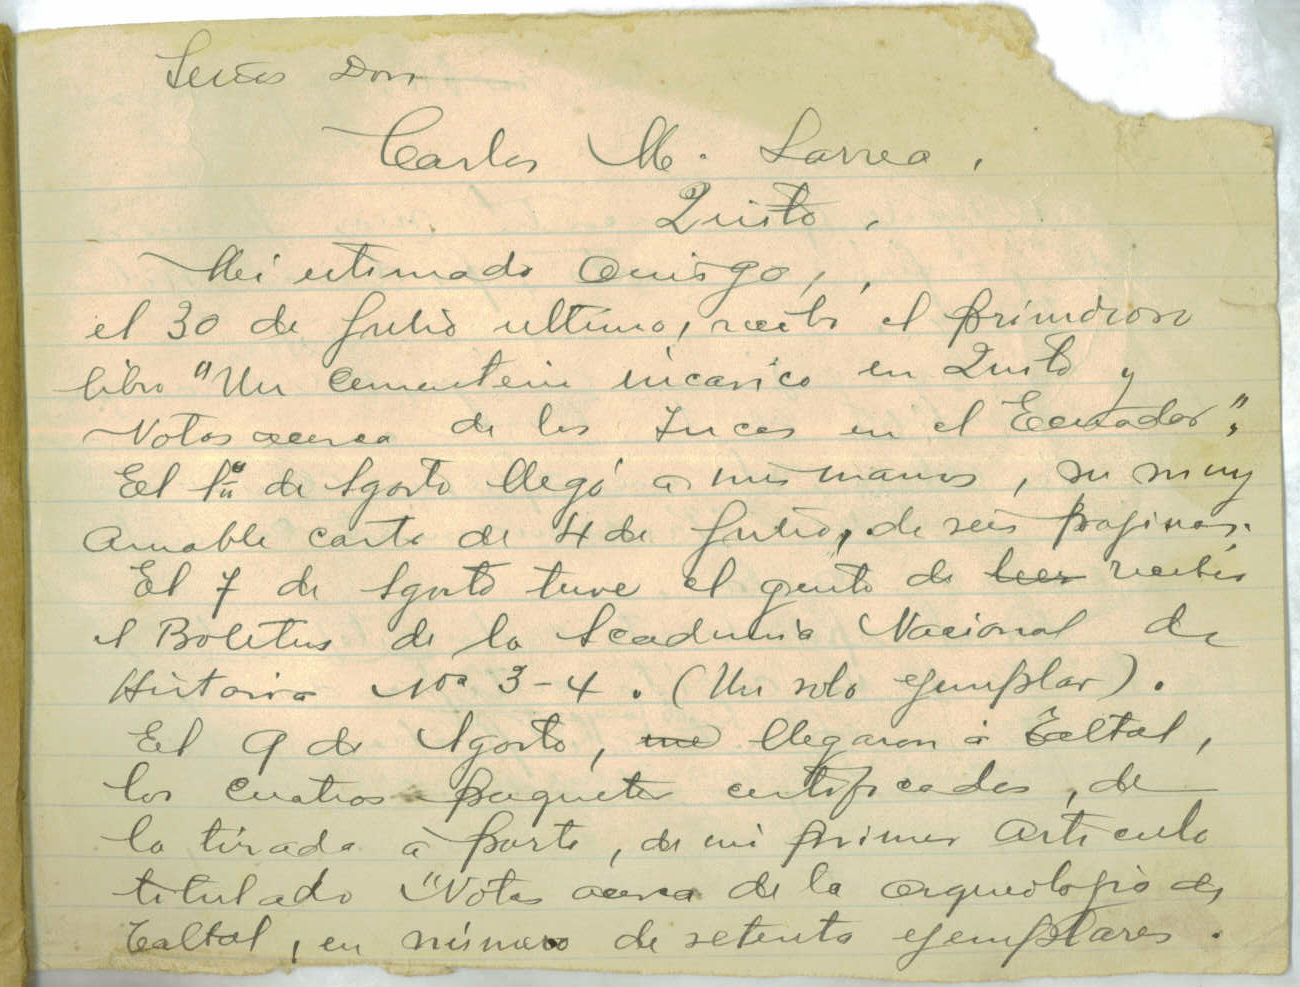 Señor Don
Carlos M. Larrea.
Quito.
Mi estimado amigo,
el 30 de Julio ultimo, recibi el primoroso
libro "Un cementerio incasico en Quito y
Notas acerca de los Incas en el Ecuador".
El 1º de Agosto llegó a mis manos, su muy
amable carta de 4 de Julio, de seis paginas.
El 7 de Agosto tuve el gusto de leer recibir
el Boletin de la Academia Nacional de
Historia Nos 3-4. (Un solo ejemplar).
El 9 de Agosto, me llegaron á Taltal,
los cuatros paquetes certificados, de
la tirada á parte, de mi primer articulo
titulado "Notas acerca de la arqueologia de
Taltal, en número de setenta ejemplares.